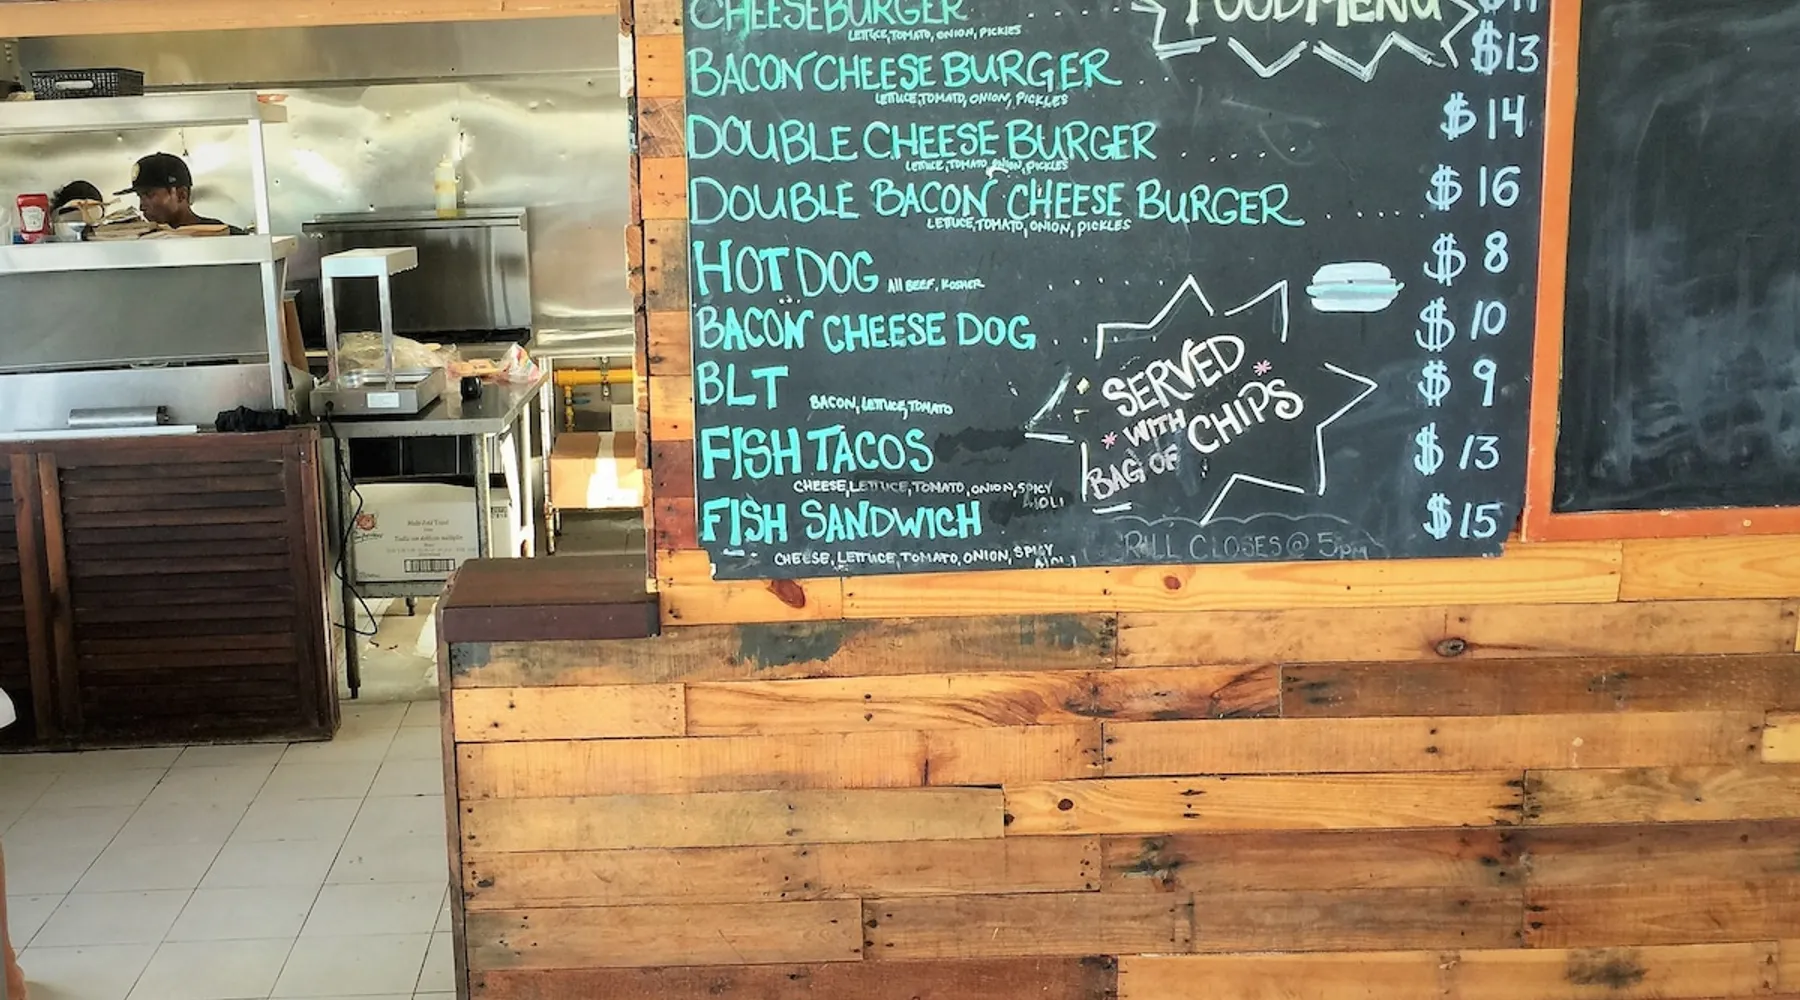 CHEESEBURGER
LETTUCE, TOMATO, ONION, PICKLES
FOOD MENU
BACON CHEESE BURGER $13
LETTUCE, TOMATO, ONION, PICKLES
DOUBLE CHEESE BURGER $14
LETTUCE, TOMATO, ONION, PICKLES
DOUBLE BACON CHEESE BURGER $16
LETTUCE, TOMATO, ONION, PICKLES
HOT DOG All BEEF, KOSHER $8
BACON CHEESE DOG $10
BLT BACON, LETTUCE, TOMATO $9
FISH TACOS $13
CHEESE, LETTUCE, TOMATO, ONION, SPICY
AIOLI
FISH SANDWICH $15
CHEESE, LETTUCE, TOMATO, ONION, SPICY
AIOLI
SERVED
* WITH CHIPS *
BAG OF
CLOSES @ 5pm